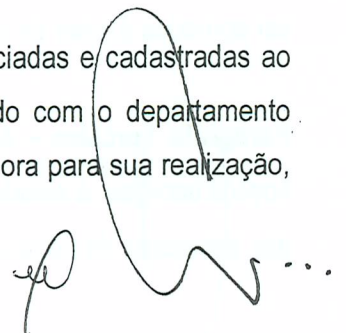 ciadas e cadastradas ao
do com o departamento
ora para sua realização,